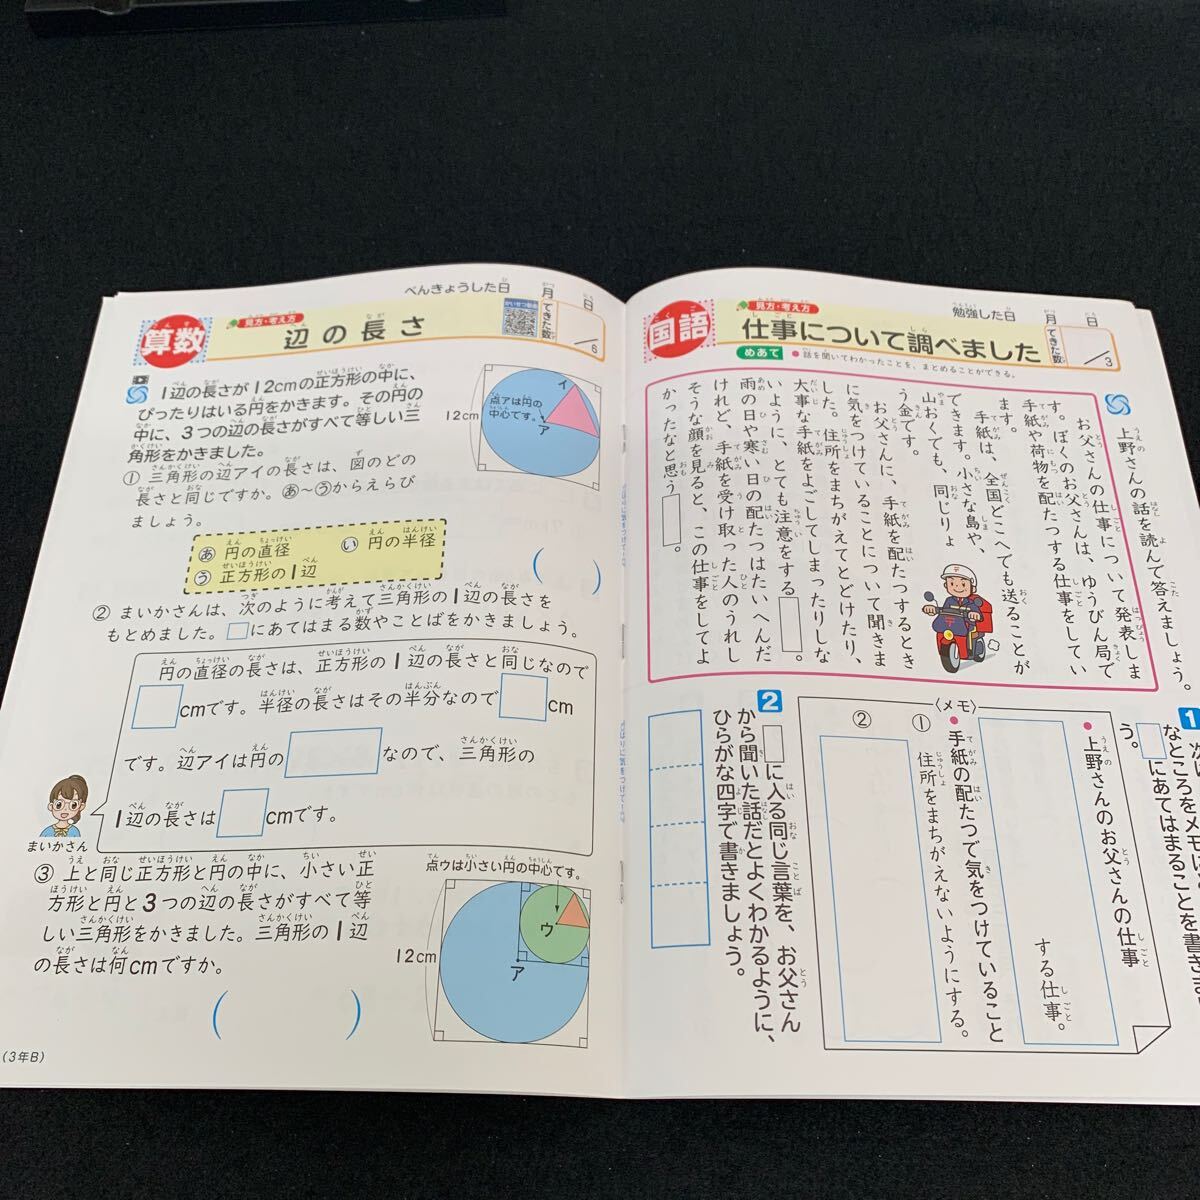 べんきょうした日 月 日
算数
見方・考え方
辺の長さ
できた数
/6
1辺の長さが12cmの正方形の中に、
ぴったりはいる円をかきます。その円の
中に、3つの辺の長さがすべて等しい三
角形をかきました。
① 三角形の辺アイの長さは、図のどの
長さと同じですか。あ〜うからえらび
ましょう。
あ 円の直径
い 円の半径
う 正方形の1辺
( )
12cm
点アは円の
中心です。
イ
ア
② まいかさんは、次のように考えて三角形の1辺の長さを
もとめました。□にあてはまる数やことばをかきましょう。
円の直径の長さは、正方形の1辺の長さと同じなので
□cmです。半径の長さはその半分なので□cm
です。辺アイは円の□なので、三角形の
1辺の長さは□cmです。
まいかさん
③ 上と同じ正方形と円の中に、小さい正
方形と円と3つの辺の長さがすべて等
しい三角形をかきました。三角形の1辺
の長さは何cmですか。
( )
点ウは小さい円の中心です。
12cm
ウ
ア
(3年B)
勉強した日 月 日
国語
見方・考え方
仕事について調べました
できた数
/3
めあて
●話を聞いてわかったことを、まとめることができる。
上野さんの話を読んで答えましょう。
お父さんの仕事について発表しま
す。ぼくのお父さんは、ゆうびん局で
手紙や荷物を配たつする仕事をしてい
ます。
手紙は、全国どこへでも送ることが
できます。小さな島や、
山おくても、同じりょ
う金です。
お父さんに、手紙を配たつするとき
に気をつけていることについて聞きま
した。住所をまちがえてとどけたり、
大事な手紙をよごしてしまったりしな
いように、とても注意をする□。
雨の日や寒い日の配たつはたいへんだ
けれど、手紙を受け取った人のうれし
そうな顔を見ると、この仕事をしてよ
かったなと思う□。
1
なところをメモに書きま
う。
□にあてはまることを書き
〈メモ〉
●上野さんのお父さんの仕事
する仕事。
●手紙の配たつで気をつけていること
① 住所をまちがえないようにする。
②
2
□に入る同じ言葉を、お父さん
から聞いた話だとよくわかるように、
ひらがな四字で書きましょう。